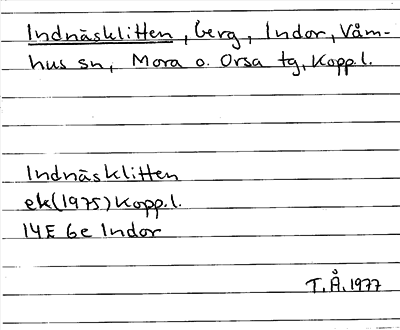 Indnäsklitten, berg, Indor, Våm-
hus sn, Mora o. Orsa tg, Kopp.l.
Indnäsklitten
ek(1975) Kopp.l.
14E 6e Indor
T.Å. 1977